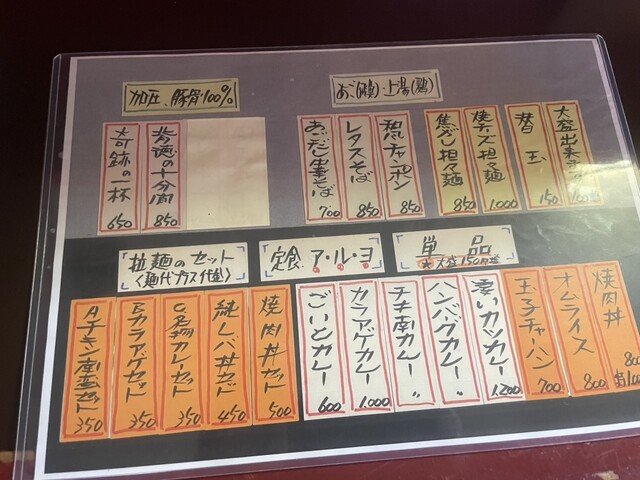 加圧、豚骨100%
奇跡の一杯 650
背徳の十分間 850
あご(飛魚)・上湯(鶏)
あごだし中華そば 700
レタスそば 850
和風チャンポン 850
焦がし担々麺 850
焼チーズ担々麺 1,000
替玉 150
大盛出来
拉麺のセット
〈麺代プラス代金〉
Aチキン南蛮セット 350
Bカラアゲセット 350
カレーセット 350
純レバ丼セット 450
焼肉丼セット 500
定食ア・ル・ヨ
単品
大盛150円増
ごいとカレー 600
カラアゲカレー 1,000
チキ南カレー 〃
ハンバグカレー 〃
凄いカツカレー 1,200
玉子チャーハン 700
オムライス 800
焼肉丼 800